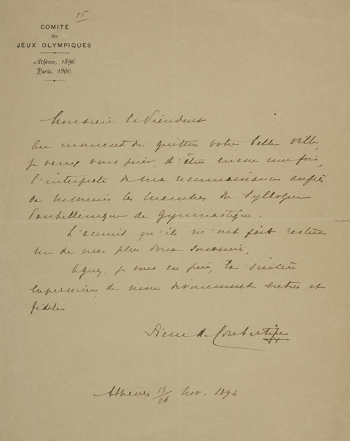 15
COMITÉ
des
JEUX OLYMPIQUES
Athènes, 1896
Paris, 1900.
Monsieur le Président
Au moment de quitter votre belle ville,
je veux vous prier d'être encore une fois
l'interprète de ma reconnaissance auprès
de Messieurs les membres du Syllogue
Panhellénique de Gymnastique.
L'accueil qu'ils m'ont fait restera
un de mes plus doux souvenirs.
Agréez, je vous en prie, la sincère
expression de mon dévouement entier et
fidèle
Pierre de Coubertin
Athènes 14/26 Nov. 1894